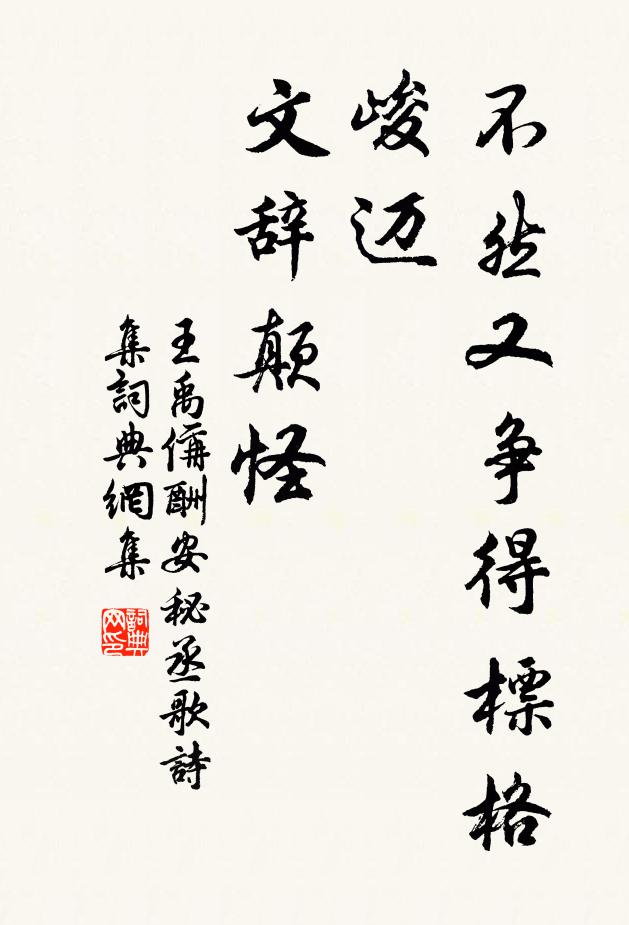 不然又争得標格
峻迈
文辞顛怪
王禹偁酬安秘丞歌詩
集詞典網集
詞典网印